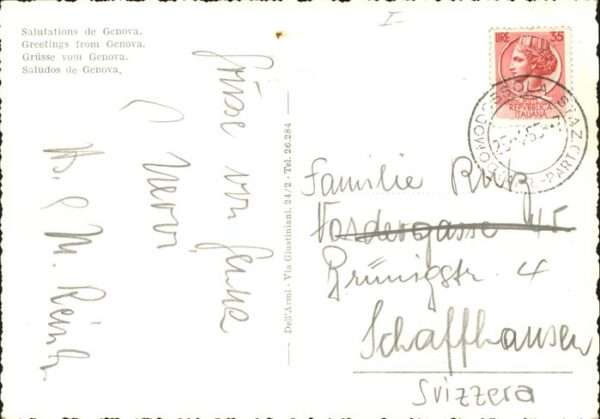 Salutations de Genova.
Greetings from Genova.
Grüsse vom Genova.
Saludos de Genova.
I
LIRE 35
REPUBBLICA
ITALIANA
DOMODOSSOLA STAZ.
PART.
Grüsse von Genua
Nervi
Dell'Armi - Via Giustiniani, 24/2 - Tel. 26.284
Familie
Vordergasse 45
Brünigstr. 4
Schaffhausen
Svizzera